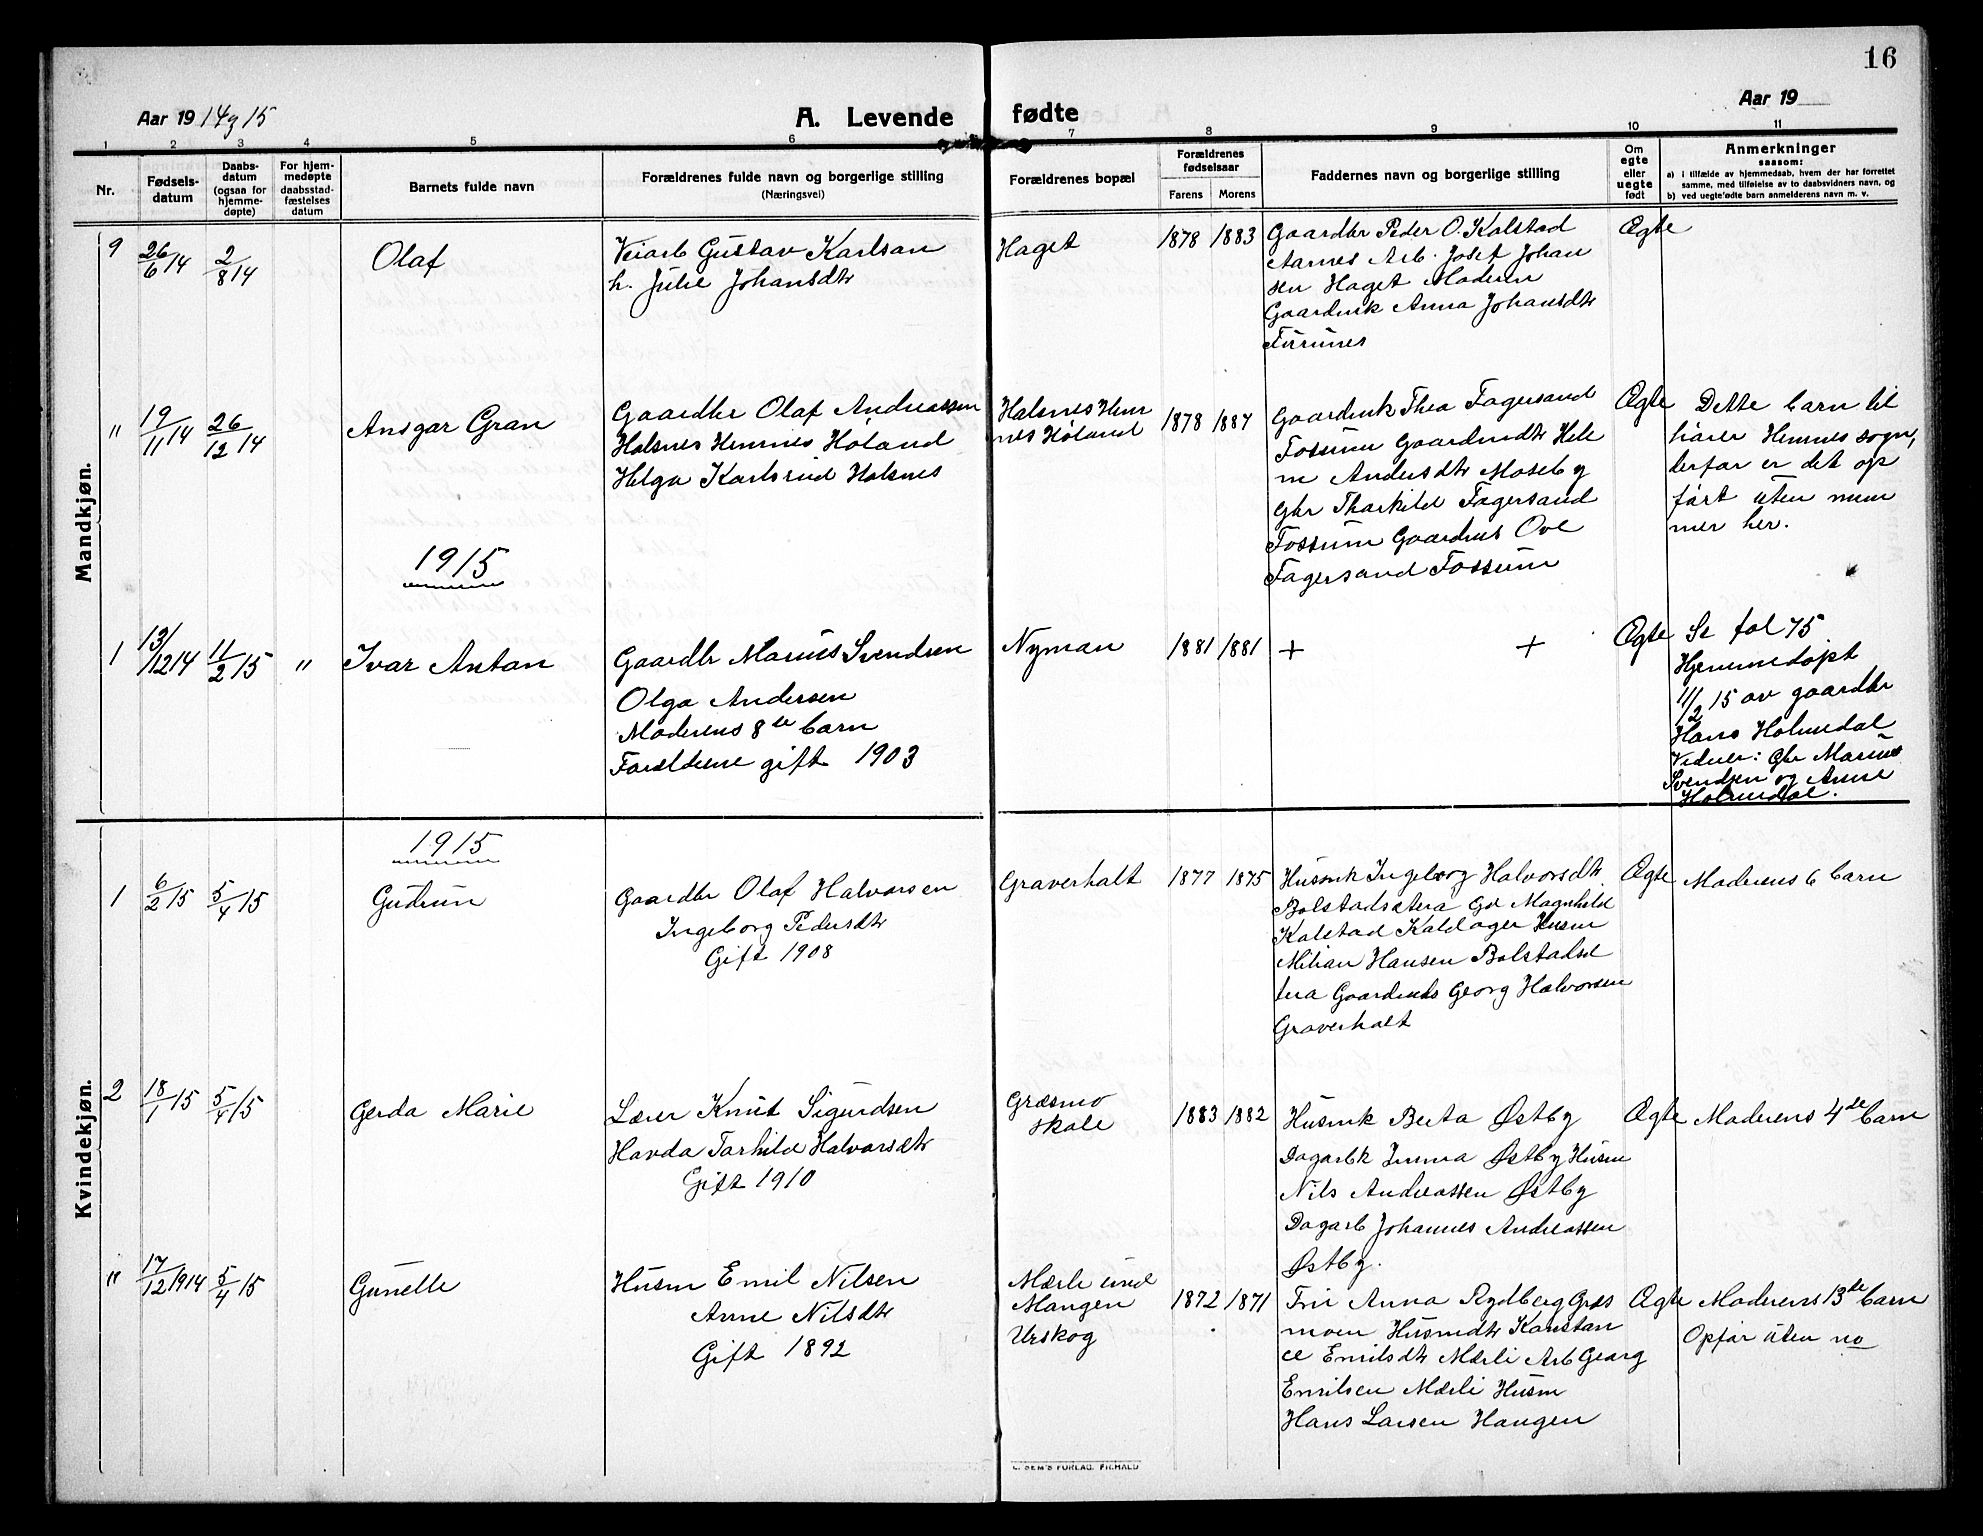 16
Aar 1914 og 15
A. Levende fødte
Aar 19
1 2 3 4 5 6 7 8 9 10 11
Nr.
Fødsels-
datum
Daabs-
datum
(ogsaa for
hjemme-
døpte)
For hjem-
medøpte
daabsstad-
fæstelses
datum
Barnets fulde navn
Forældrenes fulde navn og borgerlige stilling
(Næringsvei)
Forældrenes bopæl
Forældrenes
fødselsaar
Farens Morens
Faddernes navn og borgerlige stilling
Om
egte
eller
uegte
født
Anmerkninger
saasom:
a) i tilfælde av hjemmedaab, hvem der har forrettet
samme, med tilføielse av to daabsvidners navn, og
b) ved uegte fødte barn anmelderens navn m. v.
Mandkjøn.
9 26/6 14 2/8 14 Olaf
Veiarb Gustav Karlsen
h. Julie Johansdtr
Haget
1878 1883
Gaardbr Peder O. Kolstad
Aarnes Arb. Josef Johan
sen Haget Moderen
Gaardmk Anna Johansdtr
Ægte
" 19/11 14 26/12 14 Ansgar Gran
Gaardbr Olaf Andreassen
Holsnes Hemnes Høland
Helga Karlsrud Holsnes
Holsnes Hem
nes Høland
1878 1887
Gaardmk Thea Fagersand
Fossum Gaardmdtr Hele
ne Andersdtr Moseby
gbr Tharkild Fagersand
Fossum Gaardms Ove
Fagersand Fossum
Ægte
Dette barn til
hører Hemnes sogn,
derfor er det op
ført uten num
mer her.
1915
1 13/12 14 11/2 15 " Ivar Anton
Gaardbr Marius Svendsen
Olga Andersen
Moderens 8de barn
Forældrene gift 1903
Nyman
1881 1881
+ +
Ægte
Se fol 75
Hjemmedøpt
11/2 15 av gaardbr
Hans Holmedal
Vidner: Gbr Marius
Svendsen og Anne
Holmedal.
Kvindekjøn.
1915
1 6/2 15 5/4 15 Gudrun
Gaardbr Olaf Halvorsen
Ingeborg Pedersdtr
Gift 1908
Graverholt
1877 1875
Husmk Ingeborg Halvorsdtr
Bolstadsætra Gd Magnhild
Kolstad Kaldager Husm
Milian Hansen Bolstadsæ
tra Gaardms Georg Halvorsen
Graverholt
Ægte
Moderens 6 barn
2 18/1 15 5/4 15 Gerda Marie
Lærer Knut Sigurdsen
Havda Torhild Halvorsdtr
Gift 1910
Græsmo
skole
1883 1882
Husmk Berta Østby
Dagarbk Emma Østby Husm
Nils Andreassen Østby
Dagarb Johannes Andreassen
Østby.
Ægte
Moderens 4de barn
" 17/12 1914 5/4 15 Gunelle
Husm Emil Nilsen
Anne Nilsdtr
Gift 1892
Mærli und
Mangen
Urskog
1872 1871
Fru Anna Rydberg Græs
moen Husmdtr Konstan
ce Emilsdtr Mærli Arb Georg
Emilsen Mærli Husm
Hans Larsen Haugen
Ægte
Moderens 13de barn
Opfør uten no
SEM'S FORLAG, FR.HALD